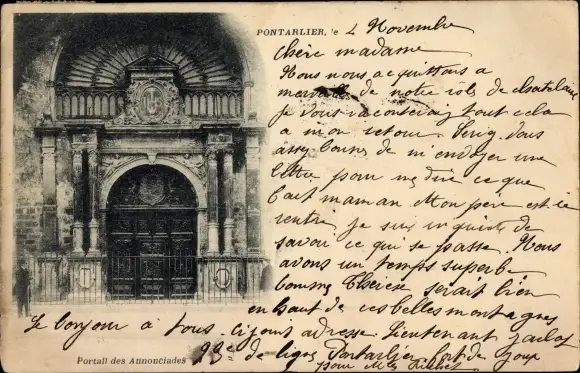 PONTARLIER, le 4 Novembre
chère madame
Nous nous acquittons a
merveille de notre rôle de chatelaine
je vous raconterai tout cela
a mon retour. Seriez vous
assez bonne de m'envoyer une
lettre pour me dire ce que
fait maman. Mon père est-il
rentré je suis inquiète de
savoir ce qui se passe. Nous
avons un temps superbe
bonsme Thérèse serait bien
en haut de ces belles montagnes
Le bonjour à tous. Ci joint adresse. Lieutenant
de ligne Pontarlier Fort de Joux
pour Mlle
Portail des Annonciades